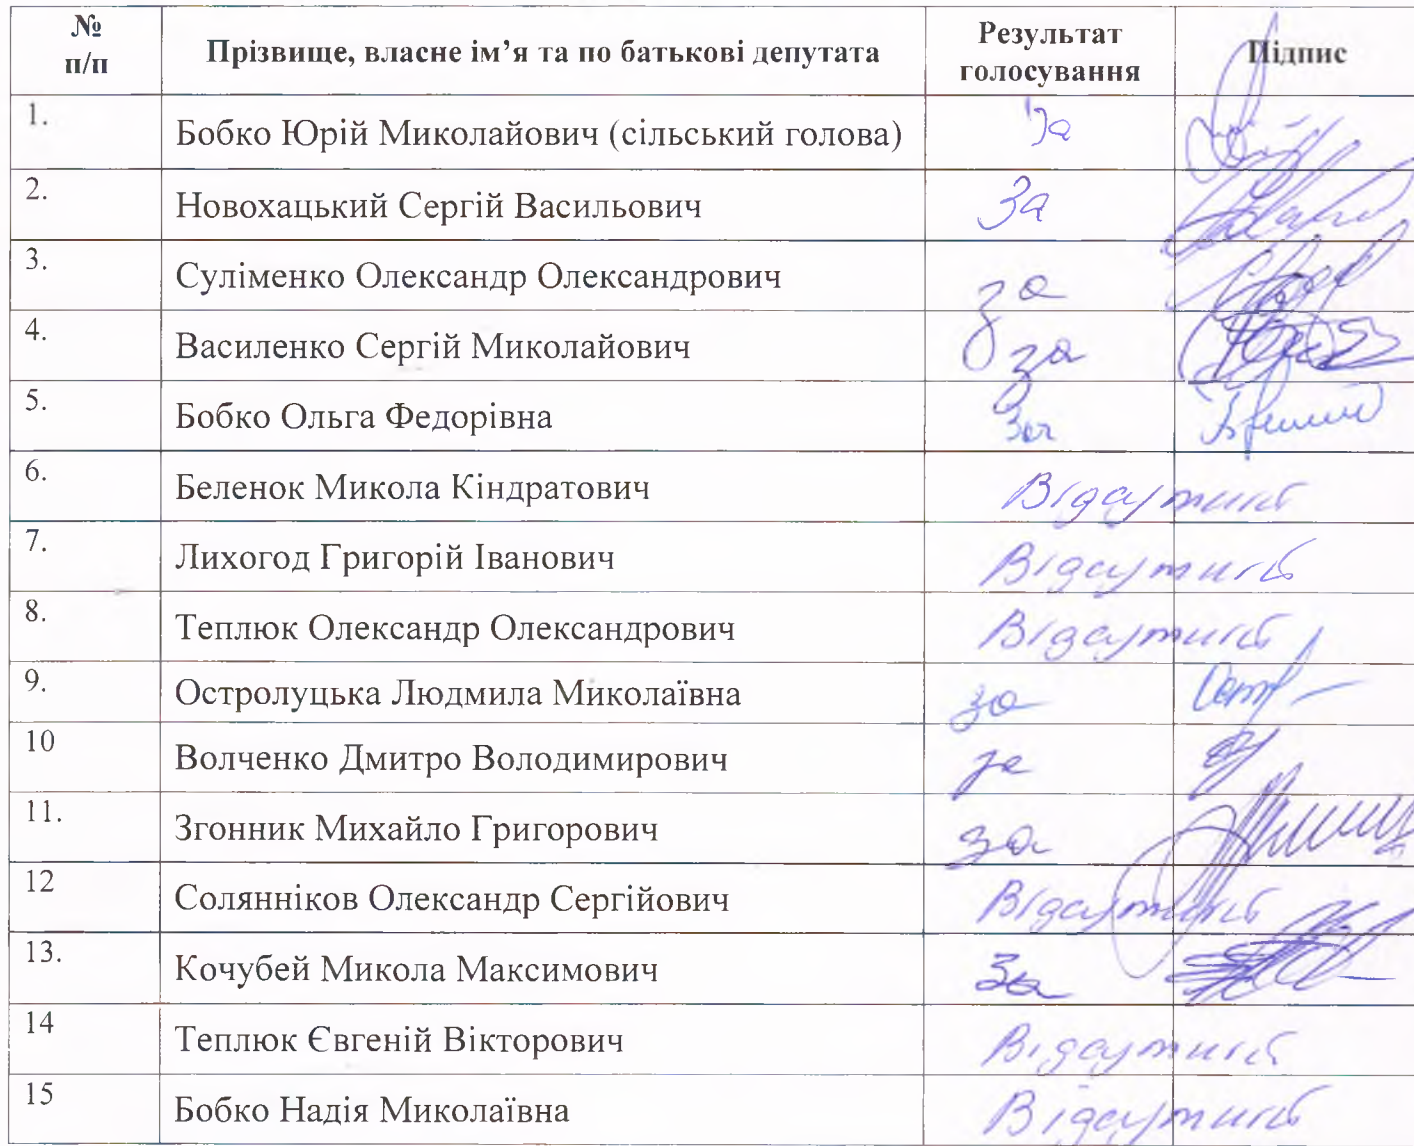 № п/п Прізвище, власне ім’я та по батькові депутата Результат голосування Підпис
1. Бобко Юрій Миколайович (сільський голова) За
2. Новохацький Сергій Васильович За
3. Суліменко Олександр Олександрович за
4. Василенко Сергій Миколайович за
5. Бобко Ольга Федорівна За
6. Беленок Микола Кіндратович Відсутній
7. Лихогод Григорій Іванович Відсутній
8. Теплюк Олександр Олександрович Відсутній
9. Остролуцька Людмила Миколаївна за
10 Волченко Дмитро Володимирович за
11. Згонник Михайло Григорович за
12 Солянніков Олександр Сергійович Відсутній
13. Кочубей Микола Максимович За
14 Теплюк Євгеній Вікторович Відсутній
15 Бобко Надія Миколаївна Відсутній